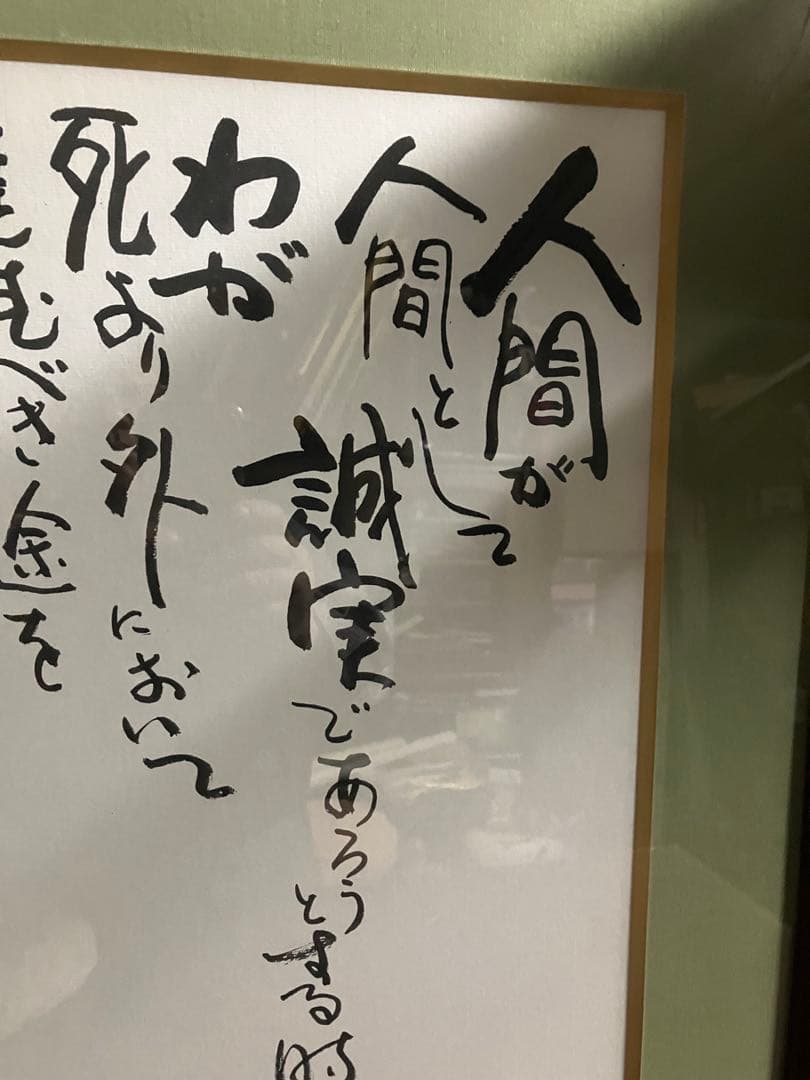 人間が
人間として
誠実であろうとする時
わが
死より外において
むべき途を